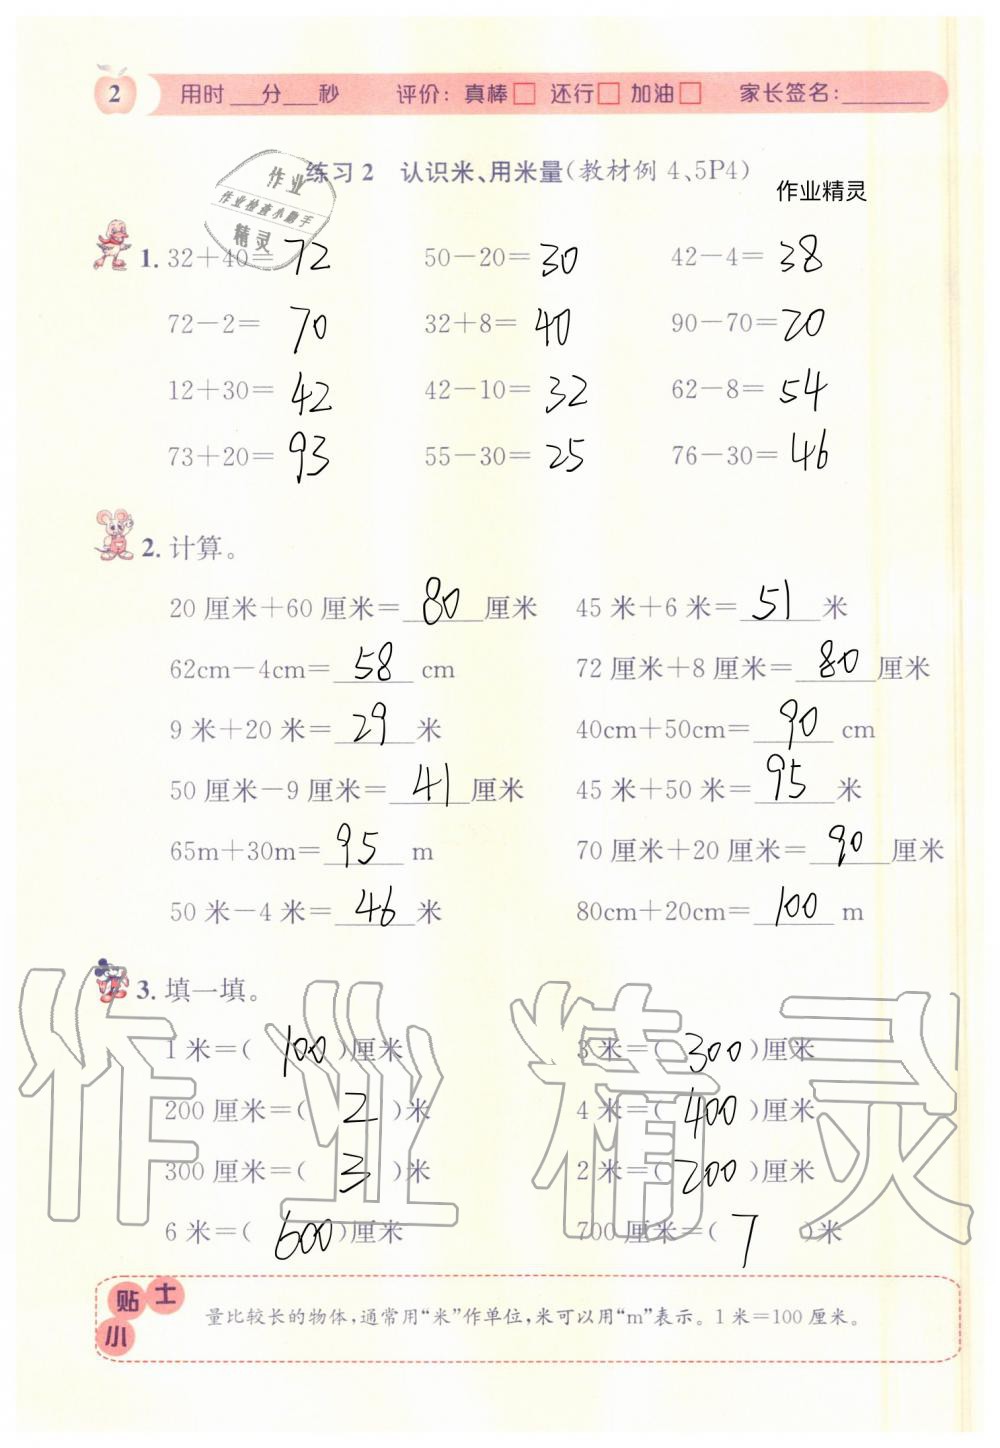 2 用时___分___秒 评价：真棒□ 还行□ 加油□ 家长签名：________
练习2 认识米、用米量(教材例4、5P4)
作业精灵
作业
作业检查小助手
精灵
1. 32+40= 72 50-20= 30 42-4= 38
72-2= 70 32+8= 40 90-70= 20
12+30= 42 42-10= 32 62-8= 54
73+20= 93 55-30= 25 76-30= 46
2. 计算。
20厘米+60厘米= 80 厘米 45米+6米= 51 米
62cm-4cm= 58 cm 72厘米+8厘米= 80 厘米
9米+20米= 29 米 40cm+50cm= 90 cm
50厘米-9厘米= 41 厘米 45米+50米= 95 米
65m+30m= 95 m 70厘米+20厘米= 90 厘米
50米-4米= 46 米 80cm+20cm= 100 m
3. 填一填。
1米=( 100 )厘米 3米=( 300 )厘米
200厘米=( 2 )米 4米=( 400 )厘米
300厘米=( 3 )米 2米=( 200 )厘米
6米=( 600 )厘米 700厘米=( 7 )米
作业精灵
小贴士
量比较长的物体，通常用“米”作单位，米可以用“m”表示。1米=100厘米。